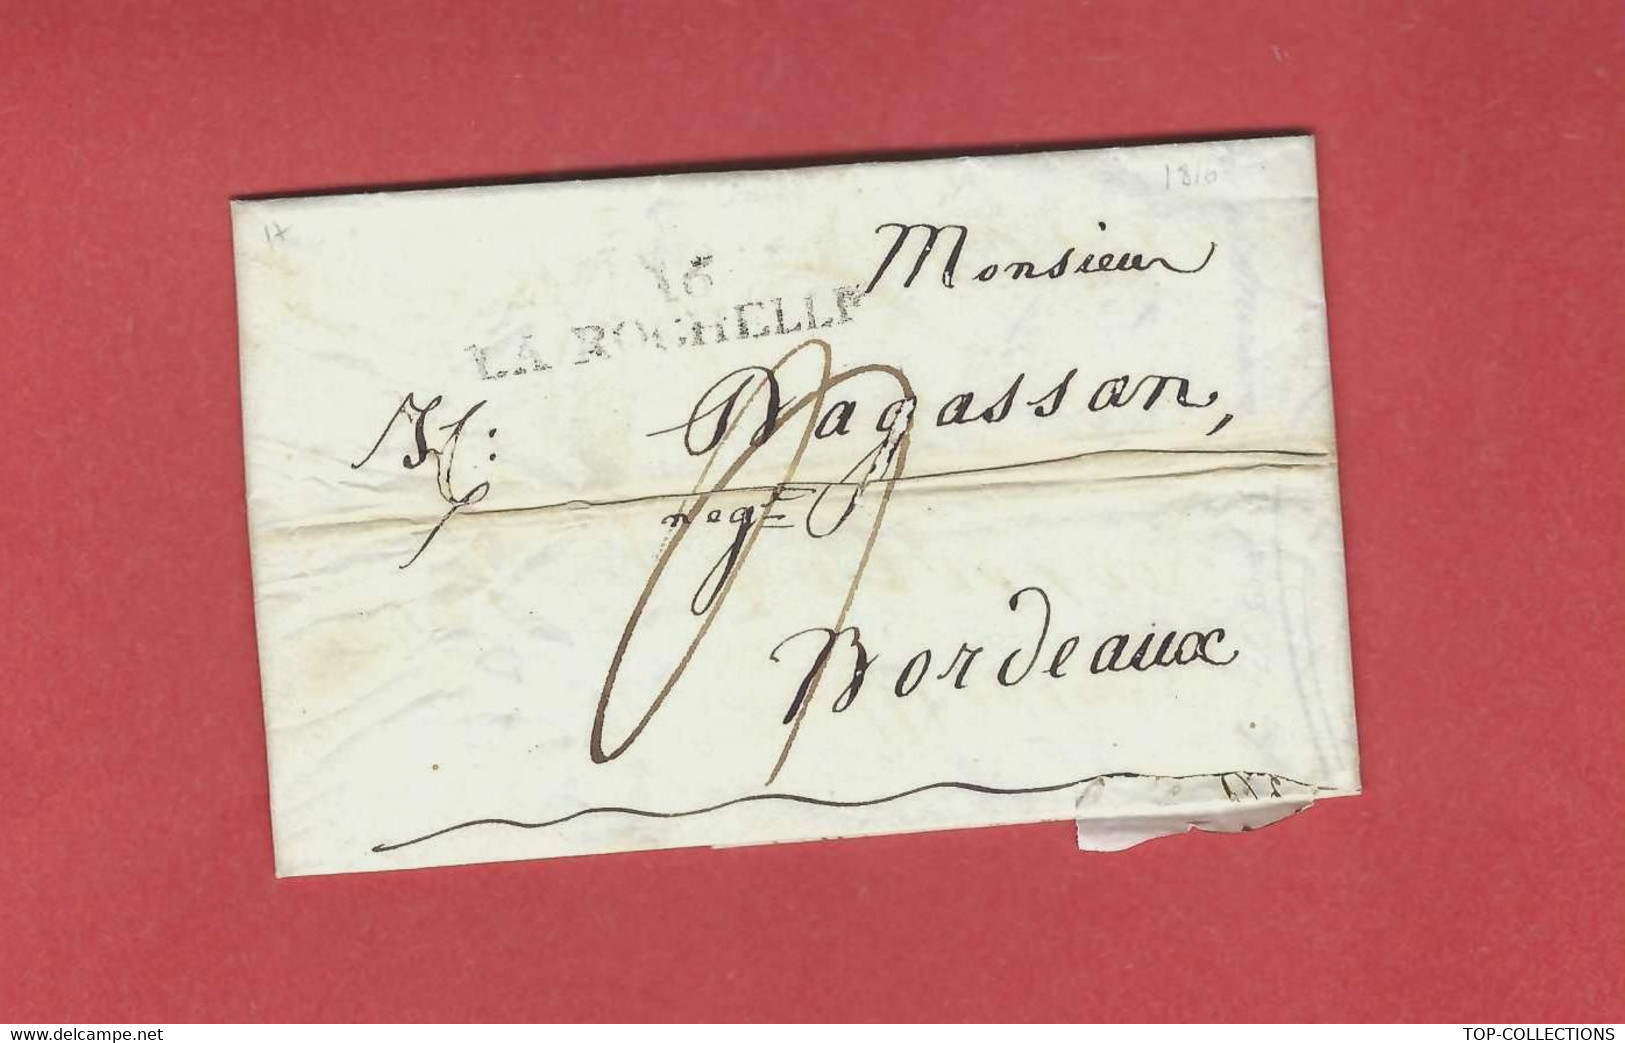 17
1816
16
LA ROCHELLE
Monsieur
Dagassan,
neg.t
Bordeaux
delcampe.net
TOP-COLLECTIONS